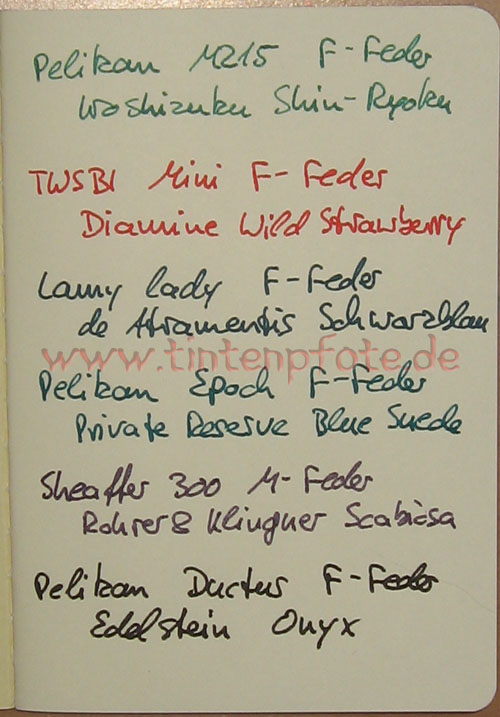 Pelikan M215 F-Feder
Iroshizuku Shin-Ryoku
TWSBI Mini F-Feder
Diamine Wild Strawberry
Lamy lady F-Feder
de Atramentis Schwarzblau
www.tintenpfote.de
Pelikan Epoch F-Feder
Private Reserve Blue Suede
Sheaffer 300 M-Feder
Rohrer & Klingner Scabiosa
Pelikan Ductus F-Feder
Edelstein Onyx